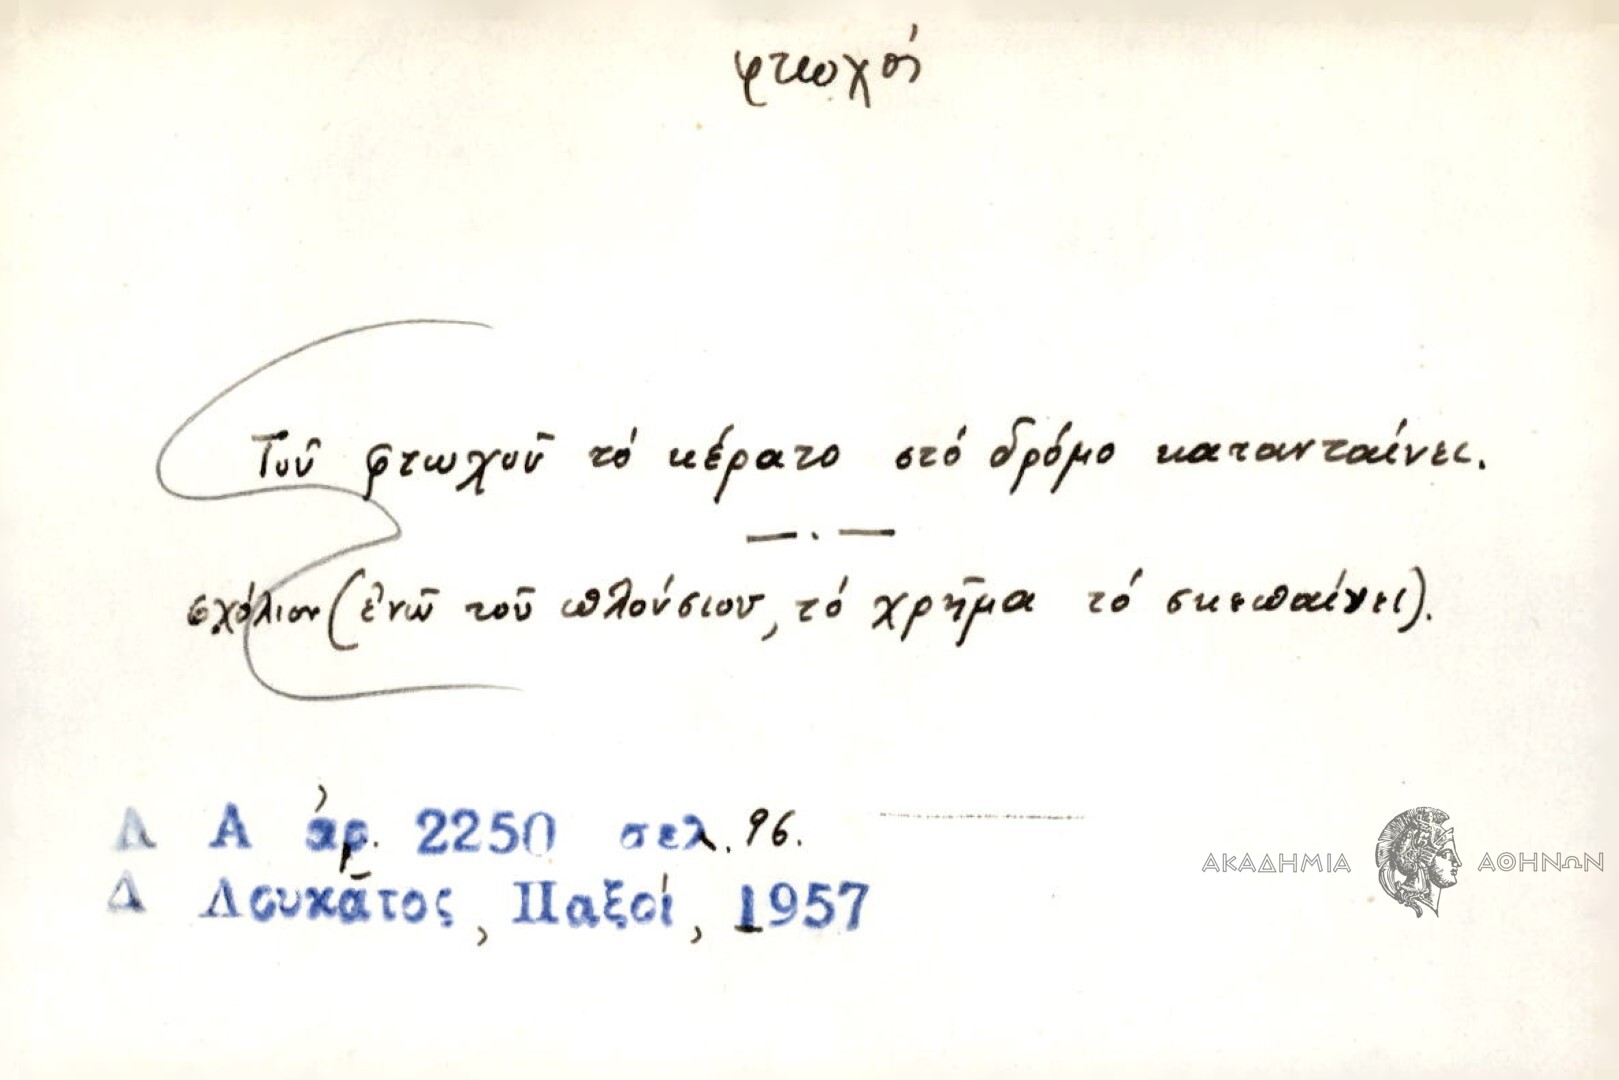 φτωχοί
Τοῦ φτωχοῦ τό κέρατο στό δρόμο κατανταίνει.
σχόλιον (ἐνῶ τοῦ πλούσιου, τό χρῆμα τό σκεπαίνει).
Λ Α ἀρ. 2250 σελ. 96.
Δ Λουκᾶτος, Παξοί, 1957
ΑΚΑΔΗΜΙΑ ΑΘΗΝΩΝ